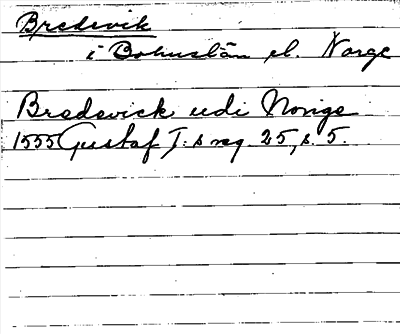 Bredevik
i Bohuslän el. Norge
Bredevick udi Norige
1555 Gustaf I:s reg. 25, s. 5.